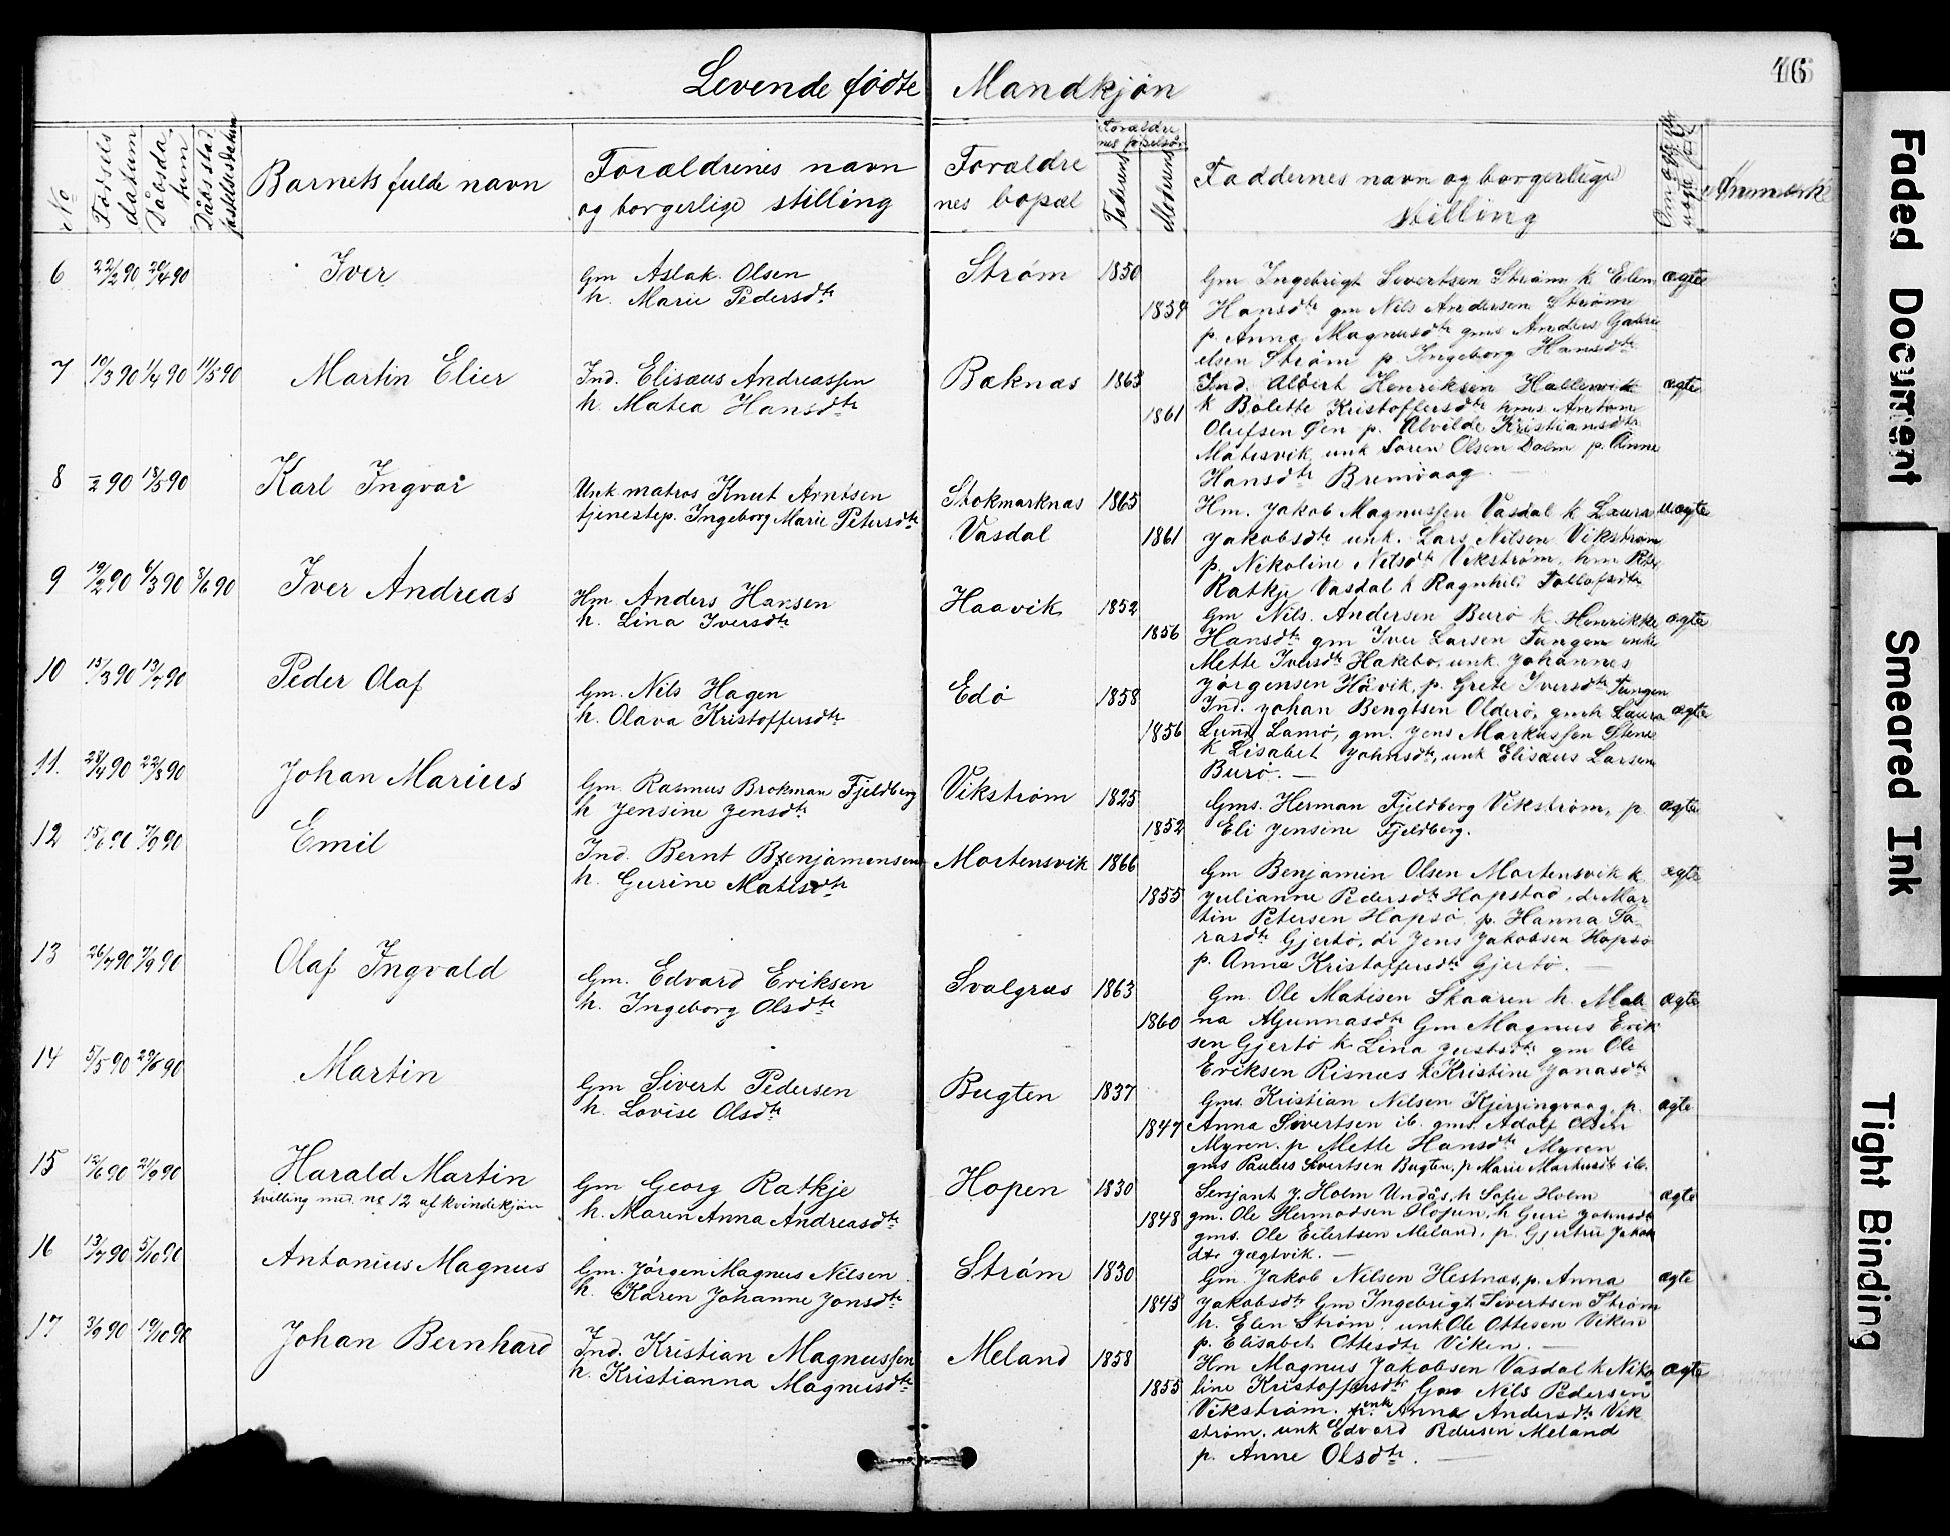 Levende fødte Mandkjøn
46
No
Fødsels datum
Dåbsda tum
Dåbs stad fæstelsesdatum
Barnets fulde navn
Forældrenes navn og borgerlige stilling
Forældre nes bopæl
Forældre nes fødselsår
Faderens
Moderens
Faddernes navn og borgerlige stilling
Om ægte eller uægte
Anmærk
6 22/2 90 20/4 90 Iver
Gm Aslak Olsen
h. Marie Pedersdtr
Strøm 1850
1854
Gm Ingebrigt Sivertsen Strøm k Elen ægte
Hansdtr gm Nils Andersen Strøm
p. Anna Magnusdtr gms Anders Gabri
elsen Strøm p Ingeborg Hansdtr
7 10/3 90 1/4 90 11/5 90 Martin Elier
Ind. Elisæus Andreassen
h. Matea Hansdtr
Bæknæs 1863
1861
Ind. Albert Henriksen Hallervik ægte
k Bolette Kristoffersdtr hms Anton
Olufsen Øen p. Alvilde Kristiansdtr
Matisvik unk Søren Olsen Dolm p. Anne
Hansdtr Bremvaag. —
8 –/2 90 18/5 90 Karl Ingvar
Unk matros Knut Arntsen
tjenestep. Ingeborg Marie Petersdtr
Stokmarknæs 1865
Vasdal 1861
Hm. Jakob Magnussen Vasdal k Laura uægte
Jakobsdtr unk. Lars Nilsen Vikstrøm
p. Nikoline Nilsdtr Vikstrøm, hm
Ratkje Vasdal h Ragnhild Tollefsdtr
9 19/2 90 6/3 90 8/6 90 Iver Andreas
Hm Anders Hansen
h. Lina Iversdtr
Haavik 1852
1856
Gm Nils Andersen Burø k. Henrikke ægte
Hansdtr gm Iver Larsen Tangen enke
Mette Iversdtr Hakebo, unk Johannes
Jørgensen Håvik, p. Grete Iversdtr Tangen
10 15/3 90 13/7 90 Peder Olaf
Gm. Nils Hagen
h. Olava Kristoffersdtr
Edø 1858
1856
Ind. Johan Bengtsen Olderø, gmh Laura ægte
Lund Lamø, gm. Jens Markussen Stene
k Lisabet Johnsdtr, unk Elisæus Larsen
Burø. —
11. 28/4 90 22/8 90 Johan Marius
Gm. Rasmus Brokman Fjeldberg
h Jensine Jensdtr
Vikstrøm 1825
1852
Gms. Herman Fjeldberg Vikstrøm, p. ægte
Eli Jensine Fjeldberg.
12 15/6 90 7/9 90 Emil
Ind. Bernt Benjamensen
h. Gurine Matisdtr
Mortensvik 1866
1855
Gm Benjamin Olsen Mortensvik k ægte
Julianne Pedersdtr Hopstad, dr Mar-
tin Petersen Hopsø, p. Hanna La-
rasdtr Gjertø, dr Jens Jakobsen Hopsø
p. Anne Kristoffersdtr Gjertø. —
13 26/7 90 7/9 90 Olaf Ingvald
Gm. Edvard Eriksen
h. Ingeborg Olsdtr
Svalgræs 1863
1860
Gm. Ole Matisen Skaaren h. Male ægte
na Agunnasdtr Gm Magnus Erik
sen Gjertø k Lina Justsdtr gm Ole
Eriksen Risnæs k Kristine Jonasdtr
14 5/5 90 29/6 90 Martin
Gm Sivert Pedersen
h. Lovise Olsdtr
Bugten 1837
1847
Gms. Kristian Nilsen Kjerringvaag, p. ægte
Anna Sivertsen ib. gms. Adolf Olsen
Myren, p Mette Hansdtr Myren
gms Paulus Sivertsen Bugten, p Marie Markusdtr ib.
15 12/6 90 21/9 90 Harald Martin
tvilling med nr 12 af kvindekjøn
Gm Georg Ratkje
h. Maren Anna Andreasdtr
Hopen 1830
1848
Sersjant J. Holm Undås, h Sofie Holm ægte
gm. Ole Hermodsen Hopen, h Guri Johnsdtr
gms. Ole Eilertsen Meland, p. Gjertru Jakob
dtr Jægtvik. —
16 13/7 90 5/10 90 Antonius Magnus
Gm. Jørgen Magnus Nilsen
h. Karen Johanne Jonsdtr
Strøm 1830
1845
Gm. Jakob Nilsen Hestnæs, p. Anna ægte
Jakobsdtr Gm Ingebrigt Sivertsen Strøm
h. Elen Strøm, unk Ole Ottesen Viken
p. Elisabet Ottesdtr Viken. —
17 3/9 90 19/10 90 Johan Bernhard
Ind. Kristian Magnussen
h. Kristianna Magnusdtr
Meland 1858
1855
Hm Magnus Jakobsen Vasdal k Niko ægte
line Kristoffersdtr Gm Nils Pedersen
Vikstrøm. enk Anna Andersdtr Vik
strøm. unk Edvard Pedersen Meland
p. Anne Olsdtr. —
Faded Document
Smeared Ink
Tight Binding